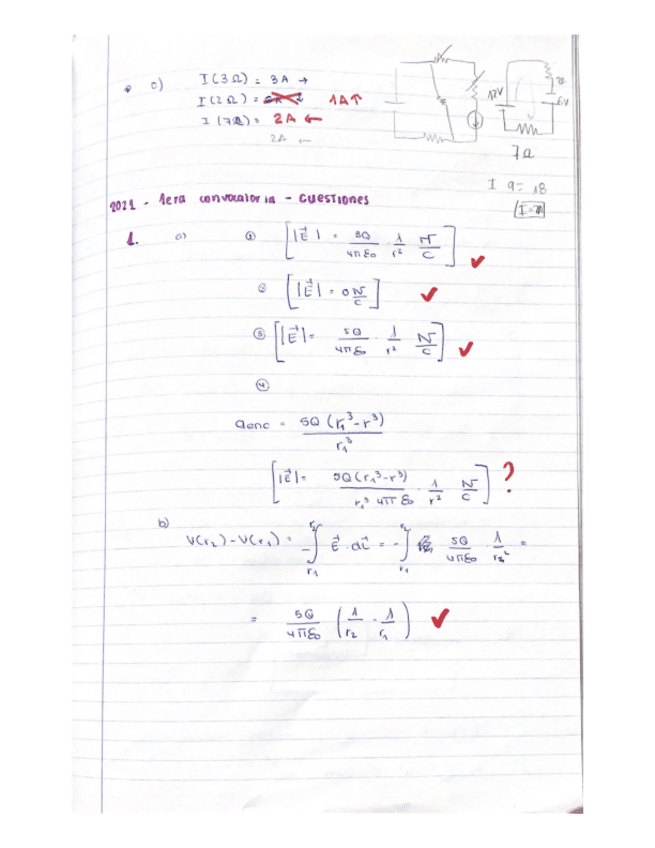 c) I(3Ω) = 3A →
I(2Ω) = 1A ↑
I(7Ω) = 2A ←
2A ←
12V
2Ω
6V
7Ω
I 9 = 18
2021 - 1era convocatoria - CUESTIONES
1. a) ① [|E⃗| = 8Q/4πε₀ · 1/r² N/C] ✓
② [|E⃗| = 0 N/C] ✓
③ [|E⃗| = 5Q/4πε₀ · 1/r² N/C] ✓
④
qenc = 5Q(r₁³-r³)/r₁³
[|E⃗| = 5Q(r₁³-r³)/r₁³ 4πε₀ · 1/r² N/C] ?
b) V(r₂) - V(r₁) = -∫r₁r₂ E⃗ · dL⃗ = -∫r₁r₂ 5Q/4πε₀ · 1/r² =
= 5Q/4πε₀ (1/r₂ - 1/r₁) ✓